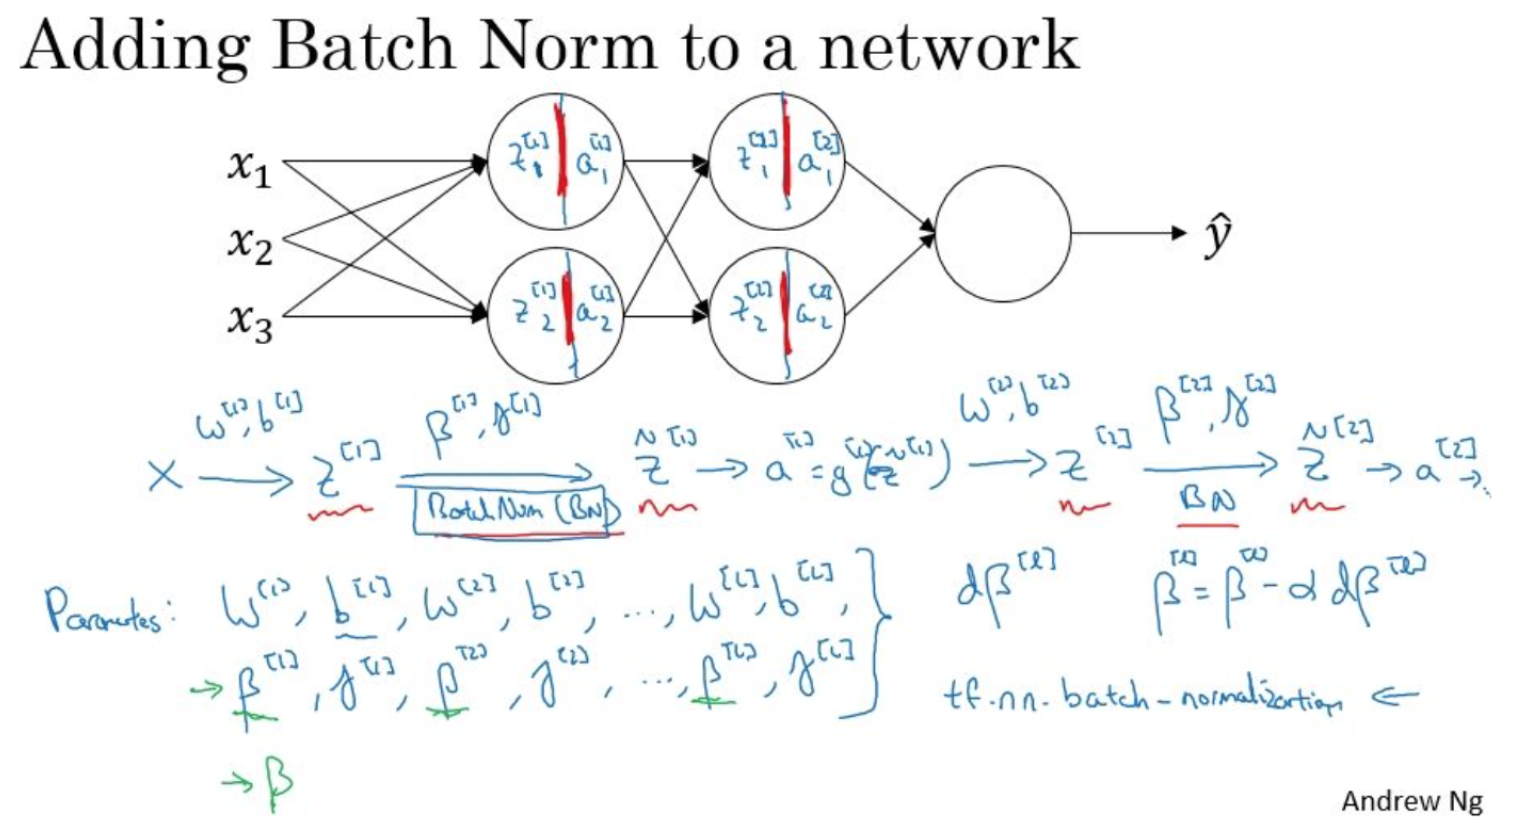 Adding Batch Norm to a network
x₁
x₂
x₃
z₁^[1] a₁^[1]
z₂^[1] a₂^[1]
z₁^[2] a₁^[2]
z₂^[2] a₂^[2]
ŷ
X → (w^[1], b^[1]) z^[1] → (β^[1], γ^[1]) Batch Norm (BN) z̃^[1] → a^[1] = g^[1](z̃^[1]) → (w^[2], b^[2]) z^[2] → (β^[2], γ^[2]) BN z̃^[2] → a^[2] → ..
Parameters: W^[1], b^[1], W^[2], b^[2], ..., W^[L], b^[L],
→ β^[1], γ^[1], β^[2], γ^[2], ..., β^[L], γ^[L] }
→ β
dβ^[l] β^[l] = β^[l] - α dβ^[l]
tf.nn.batch-normalization ←
Andrew Ng